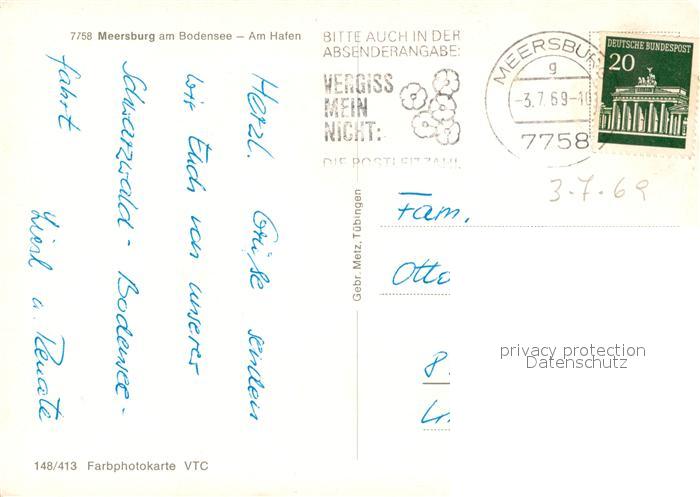 7758 Meersburg am Bodensee – Am Hafen
BITTE AUCH IN DER
ABSENDERANGABE:
VERGISS
MEIN
NICHT:
DIE POSTLEITZAHL
MEERSBURG
g
-3.7.69-10
7758
DEUTSCHE BUNDESPOST
20
3.7.69
Herzl. Grüße senden
wir Euch von unserer
Schwarzwald - Bodensee-
fahrt
Liesl u. Renate
Gebr. Metz, Tübingen
Fam.
Otto
8.
privacy protection
Datenschutz
148/413 Farbphotokarte VTC